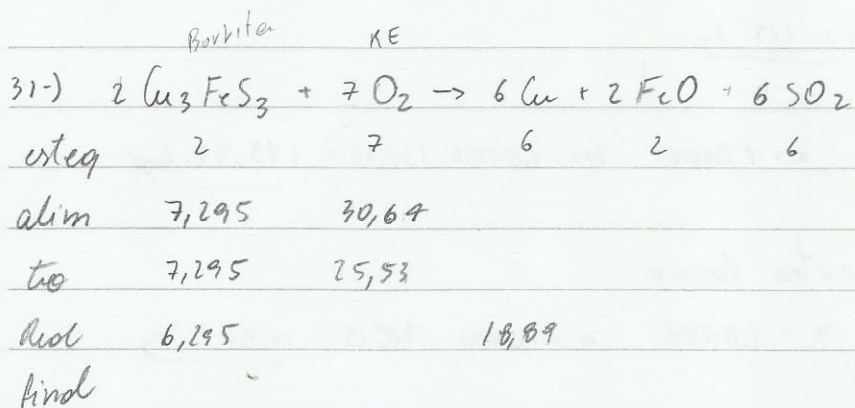 Bornita KE
31-) 2 Cu₃FeS₃ + 7 O₂ → 6 Cu + 2 FeO + 6 SO₂
esteq 2 7 6 2 6
alim 7,295 30,64
teo 7,295 25,53
Real 6,295 18,89
final